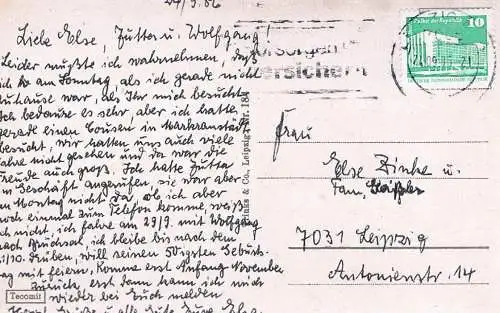 24/9.86
Liebe Else, Jutta u. Wolfgang!
Leider mußte ich wahrnehmen, daß
ich am Sonntag als ich gerade nicht
zuhause war, als Ihr mich besuchtet
Ich bedaure es sehr, aber ich hatte
gerade einen Cousen in Markranstädt
besucht, wir hatten uns auch viele
Jahre nicht gesehen und da war die
Freude auch groß. Ich hatte Jutta
im Geschäft angerufen, sie war aber
am Montag nicht da, ob ich aber
noch einmal zum Telefon komme, weiß
ich nicht, ich fahre am 29/9. mit Wolfgang
nach Bruchsal, ich bleibe bis nach dem
/10. drüben, will seinen 50zigsten Geburts-
tag mit feiern, komme erst Anfang November
zurück, erst dann kann ich mich
wieder bei Euch melden
Grüße u. alles Gute Eure
Tecomit
& Co., Leipzig Nr. 184
vorsorgen
versichern
Palast der Republik
10
DDR
Frau
Else Zinke u.
Fam.
7031 Leipzig
Antonienstr. 14